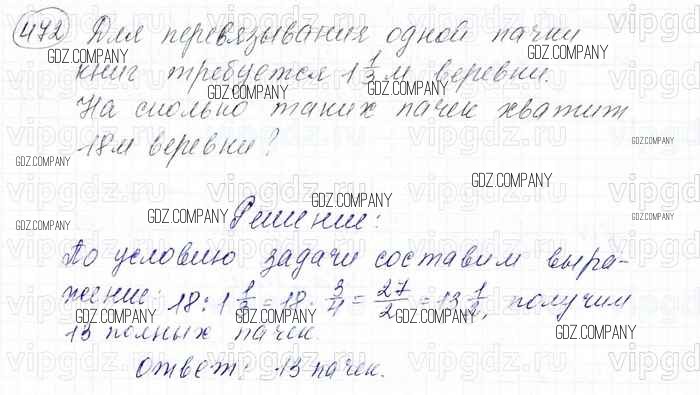 472 Для перевязывания одной пачки
книг требуется 1 1/3 м веревки.
На сколько таких пачек хватит
18м веревки?
Решение:
По условию задачи составим выра-
жение: 18 : 1 1/3 = 18 · 3/4 = 27/2 = 13 1/2, получим
13 полных пачек.
Ответ: 13 пачек.
GDZ.COMPANY
vipgdz.ru